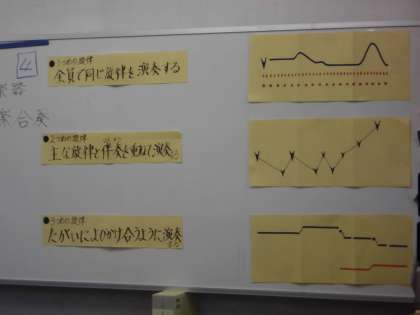 4
楽器
楽合奏
●1つめの旋律
全員で同じ旋律を演奏する
●2つめの旋律
主な旋律と伴奏を重ねて演奏する
●3つめの旋律
たがいによびかけ合うように演奏する